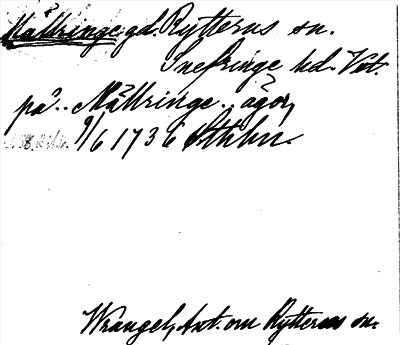 Mällringe gd. Rytterns sn.
Snefringe hd. Vstm.
på.. Mällringe.. ägor,
9/6 1736 Sthlm.
Wrangel, Ant. om Rytterns sn.